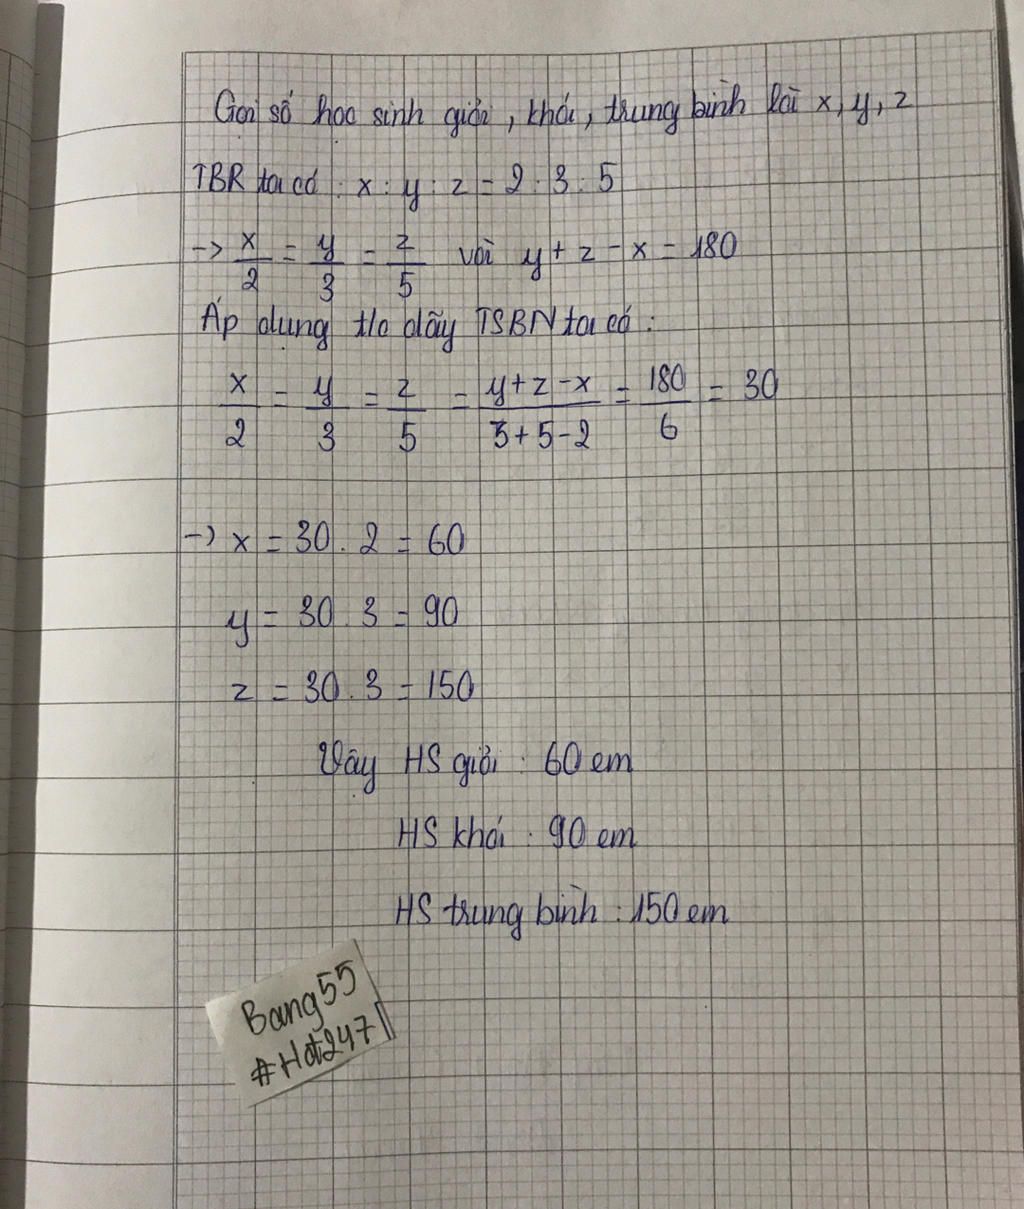 Gọi số học sinh giỏi, khá, trung bình là x, y, z
TBR ta có : x : y : z = 2 : 3 : 5
-> x/2 = y/3 = z/5 với y + z - x = 180
Áp dụng t/c dãy TSBN ta có :
x/2 = y/3 = z/5 = y+z-x/3+5-2 = 180/6 = 30
-> x = 30 . 2 = 60
y = 30 . 3 = 90
z = 30 . 3 = 150
Vậy HS giỏi : 60 em
HS khá : 90 em
HS trung bình : 150 em
Bang55
#Hd247